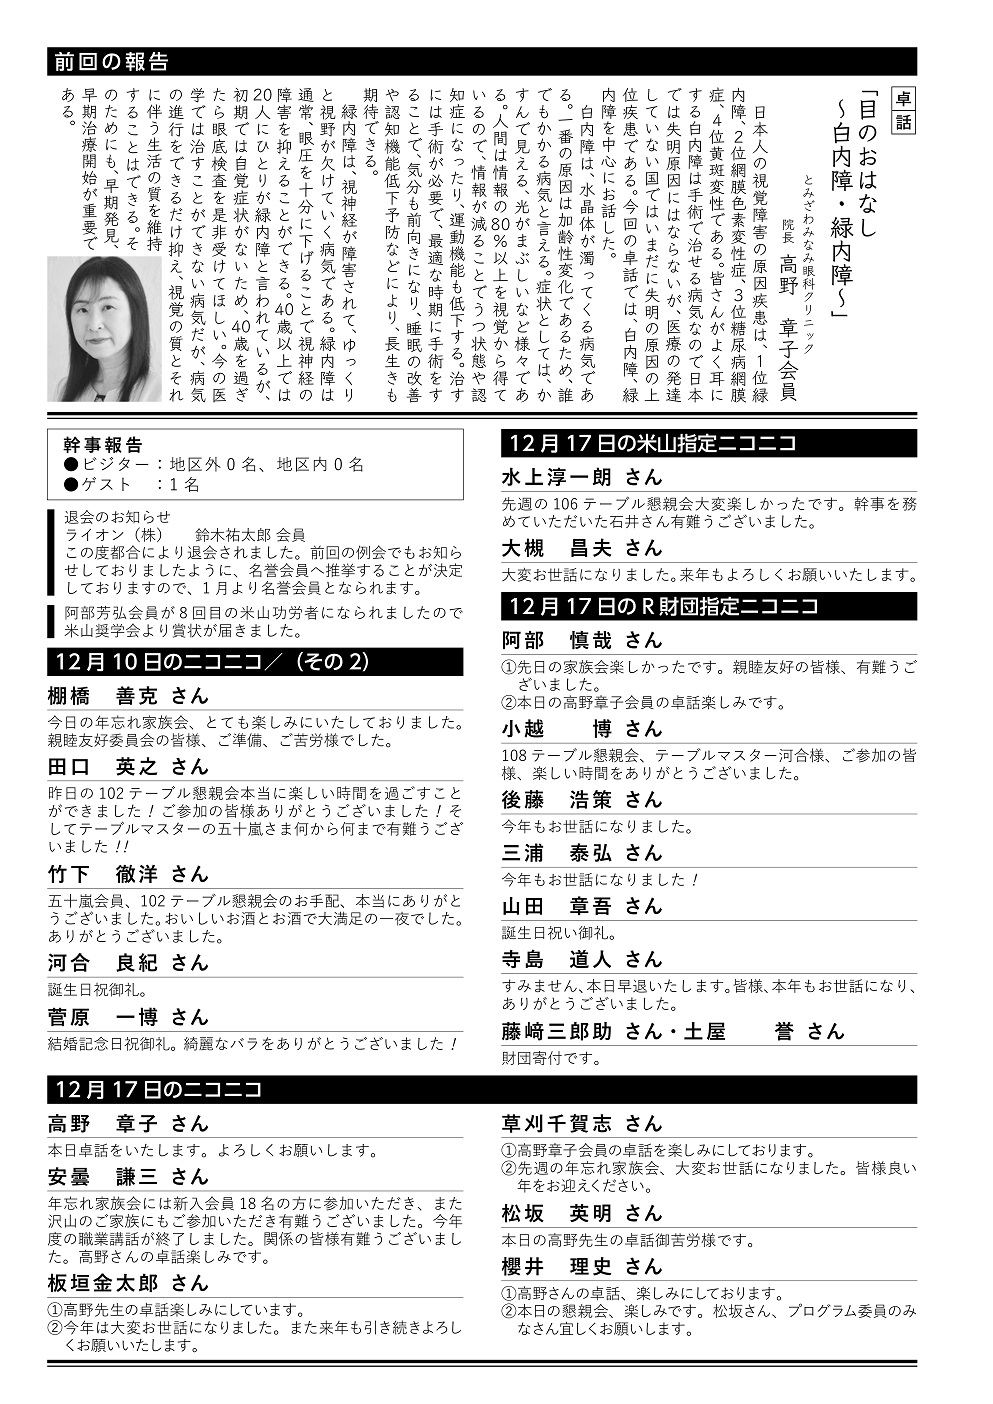 前回の報告
卓話
「目のおはなし
～白内障・緑内障～」
とみざわみなみ眼科クリニック
院長 高野 章子会員
日本人の視覚障害の原因疾患は、1位緑
内障、2位網膜色素変性症、3位糖尿病網膜
症、4位黄斑変性である。皆さんがよく耳に
する白内障は手術で治せる病気なので日本
では失明原因にはならないが、医療の発達
していない国ではいまだに失明の原因の上
位疾患である。今回の卓話では、白内障、緑
内障を中心にお話した。
白内障は、水晶体が濁ってくる病気であ
る。一番の原因は加齢性変化であるため、誰
でもかかる病気と言える。症状としては、か
すんで見える、光がまぶしいなど様々であ
る。人間は情報の80％以上を視覚から得て
いるので、情報が減ることでうつ状態や認
知症になったり、運動機能も低下する。治す
には手術が必要で、最適な時期に手術をす
ることで、気分も前向きになり、睡眠の改善
や認知機能低下予防などにより、長生きも
期待できる。
緑内障は、視神経が障害されて、ゆっくり
と視野が欠けていく病気である。緑内障は
通常、眼圧を十分に下げることで視神経の
障害を抑えることができる。40歳以上では
20人にひとりが緑内障と言われているが、
初期では自覚症状がないため、40歳を過ぎ
たら眼底検査を是非受けてほしい。今の医
学では治すことができない病気だが、病気
の進行をできるだけ抑え、視覚の質とそれ
に伴う生活の質を維持
することはできる。そ
のためにも、早期発見、
早期治療開始が重要で
ある。
幹事報告
●ビジター：地区外0名、地区内0名
●ゲスト　：1名
退会のお知らせ
ライオン（株）　　鈴木祐太郎 会員
この度都合により退会されました。前回の例会でもお知ら
せしておりましたように、名誉会員へ推挙することが決定
しておりますので、1月より名誉会員となられます。
阿部芳弘会員が8回目の米山功労者になられましたので
米山奨学会より賞状が届きました。
12月10日のニコニコ／（その2）
棚橋　善克 さん
今日の年忘れ家族会、とても楽しみにいたしておりました。
親睦友好委員会の皆様、ご準備、ご苦労様でした。
田口　英之 さん
昨日の102テーブル懇親会本当に楽しい時間を過ごすこと
ができました！ご参加の皆様ありがとうございました！そ
してテーブルマスターの五十嵐さま何から何まで有難うござ
いました!!
竹下　徹洋 さん
五十嵐会員、102テーブル懇親会のお手配、本当にありがと
うございました。おいしいお酒とお酒で大満足の一夜でした。
ありがとうございました。
河合　良紀 さん
誕生日祝御礼。
菅原　一博 さん
結婚記念日祝御礼。綺麗なバラをありがとうございました！
12月17日の米山指定ニコニコ
水上淳一朗 さん
先週の106テーブル懇親会大変楽しかったです。幹事を務
めていただいた石井さん有難うございました。
大槻　昌夫 さん
大変お世話になりました。来年もよろしくお願いいたします。
12月17日のR財団指定ニコニコ
阿部　慎哉 さん
①先日の家族会楽しかったです。親睦友好の皆様、有難うご
ざいました。
②本日の高野章子会員の卓話楽しみです。
小越　　博 さん
108テーブル懇親会、テーブルマスター河合様、ご参加の皆
様、楽しい時間をありがとうございました。
後藤　浩策 さん
今年もお世話になりました。
三浦　泰弘 さん
今年もお世話になりました！
山田　章吾 さん
誕生日祝い御礼。
寺島　道人 さん
すみません、本日早退いたします。皆様、本年もお世話になり、
ありがとうございました。
藤﨑三郎助 さん・土屋　　誉 さん
財団寄付です。
12月17日のニコニコ
高野　章子 さん
本日卓話をいたします。よろしくお願いします。
安曇　謙三 さん
年忘れ家族会には新入会員18名の方に参加いただき、また
沢山のご家族にもご参加いただき有難うございました。今年
度の職業講話が終了しました。関係の皆様有難うございまし
た。高野さんの卓話楽しみです。
板垣金太郎 さん
①高野先生の卓話楽しみにしています。
②今年は大変お世話になりました。また来年も引き続きよろし
くお願いいたします。
草刈千賀志 さん
①高野章子会員の卓話を楽しみにしております。
②先週の年忘れ家族会、大変お世話になりました。皆様良い
年をお迎えください。
松坂　英明 さん
本日の高野先生の卓話御苦労様です。
櫻井　理史 さん
①高野さんの卓話、楽しみにしております。
②本日の懇親会、楽しみです。松坂さん、プログラム委員のみ
なさん宜しくお願いします。